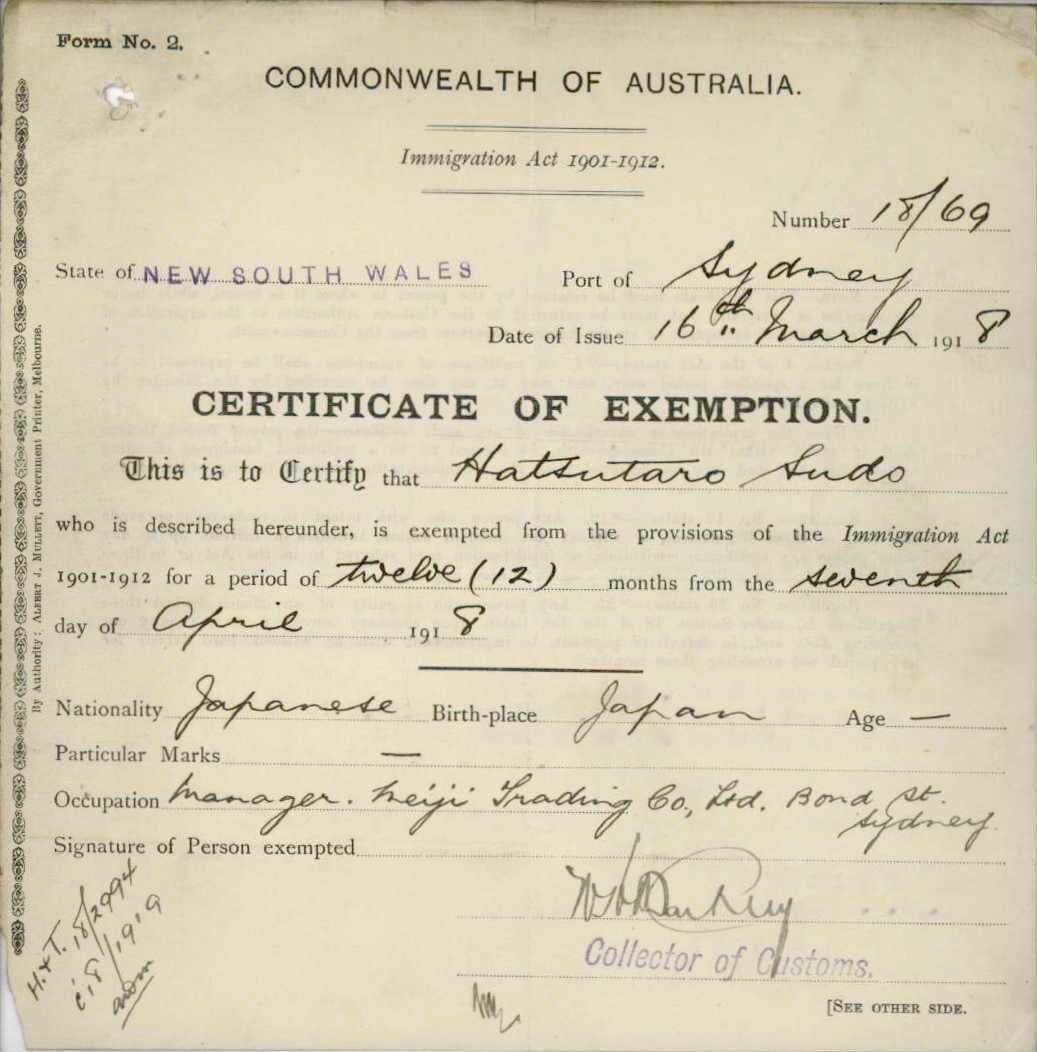 Form No. 2.
COMMONWEALTH OF AUSTRALIA.
Immigration Act 1901-1912.
Number 18/69
State of NEW SOUTH WALES Port of Sydney
Date of Issue 16th March 1918
CERTIFICATE OF EXEMPTION.
This is to Certify that Hatsutaro Sudo
who is described hereunder, is exempted from the provisions of the Immigration Act
1901-1912 for a period of twelve (12) months from the seventh
day of April 1918
Nationality Japanese Birth-place Japan Age —
Particular Marks —
Occupation Manager. Meiji Trading Co., Ltd. Bond St.
Sydney.
Signature of Person exempted
Collector of Customs.
[SEE OTHER SIDE.
By Authority: ALBERT J. MULLETT, Government Printer, Melbourne.
H.&T. 18/2994
C.18/1919